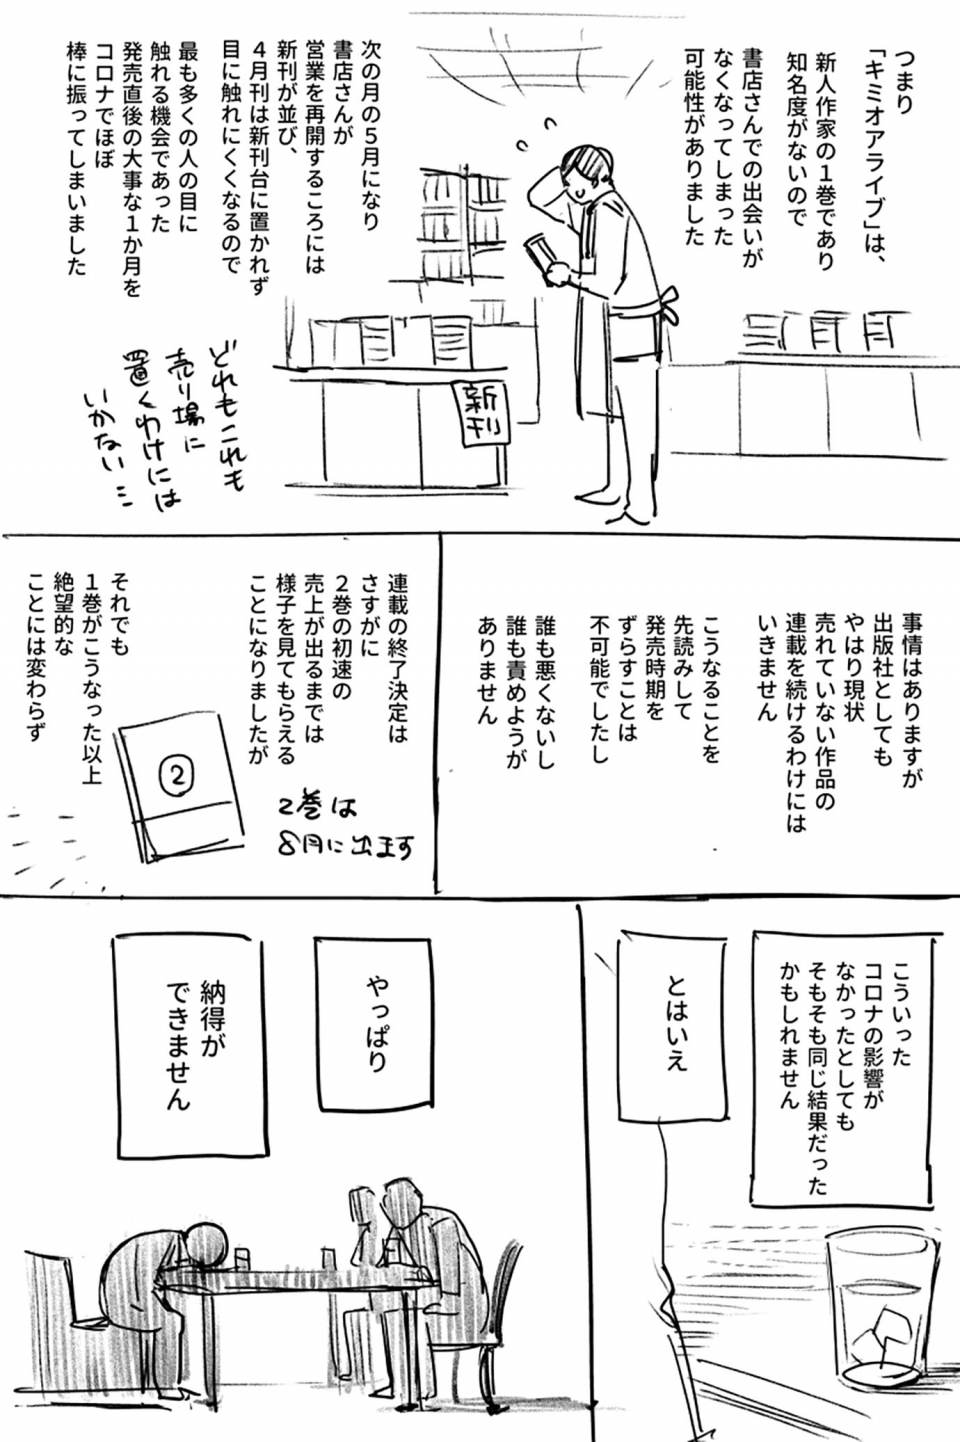 つまり
「キミオアライブ」は、
新人作家の１巻であり
知名度がないので
書店さんでの出会いが
なくなってしまった
可能性がありました
次の月の５月になり
書店さんが
営業を再開するころには
新刊が並び、
４月刊は新刊台に置かれず
目に触れにくくなるので
最も多くの人の目に
触れる機会であった
発売直後の大事な１か月を
コロナでほぼ
棒に振ってしまいました
新刊
どれもこれも
売り場に
置くわけには
いかない…
事情はありますが
出版社としても
やはり現状
売れていない作品の
連載を続けるわけには
いきません
こうなることを
先読みして
発売時期を
ずらすことは
不可能でしたし
誰も悪くないし
誰も責めようが
ありません
連載の終了決定は
さすがに
２巻の初速の
売上が出るまでは
様子を見てもらえる
ことになりましたが
2巻は
8月に出ます
②
それでも
１巻がこうなった以上
絶望的な
ことには変わらず
こういった
コロナの影響が
なかったとしても
そもそも同じ結果だった
かもしれません
とはいえ
やっぱり
納得が
できません